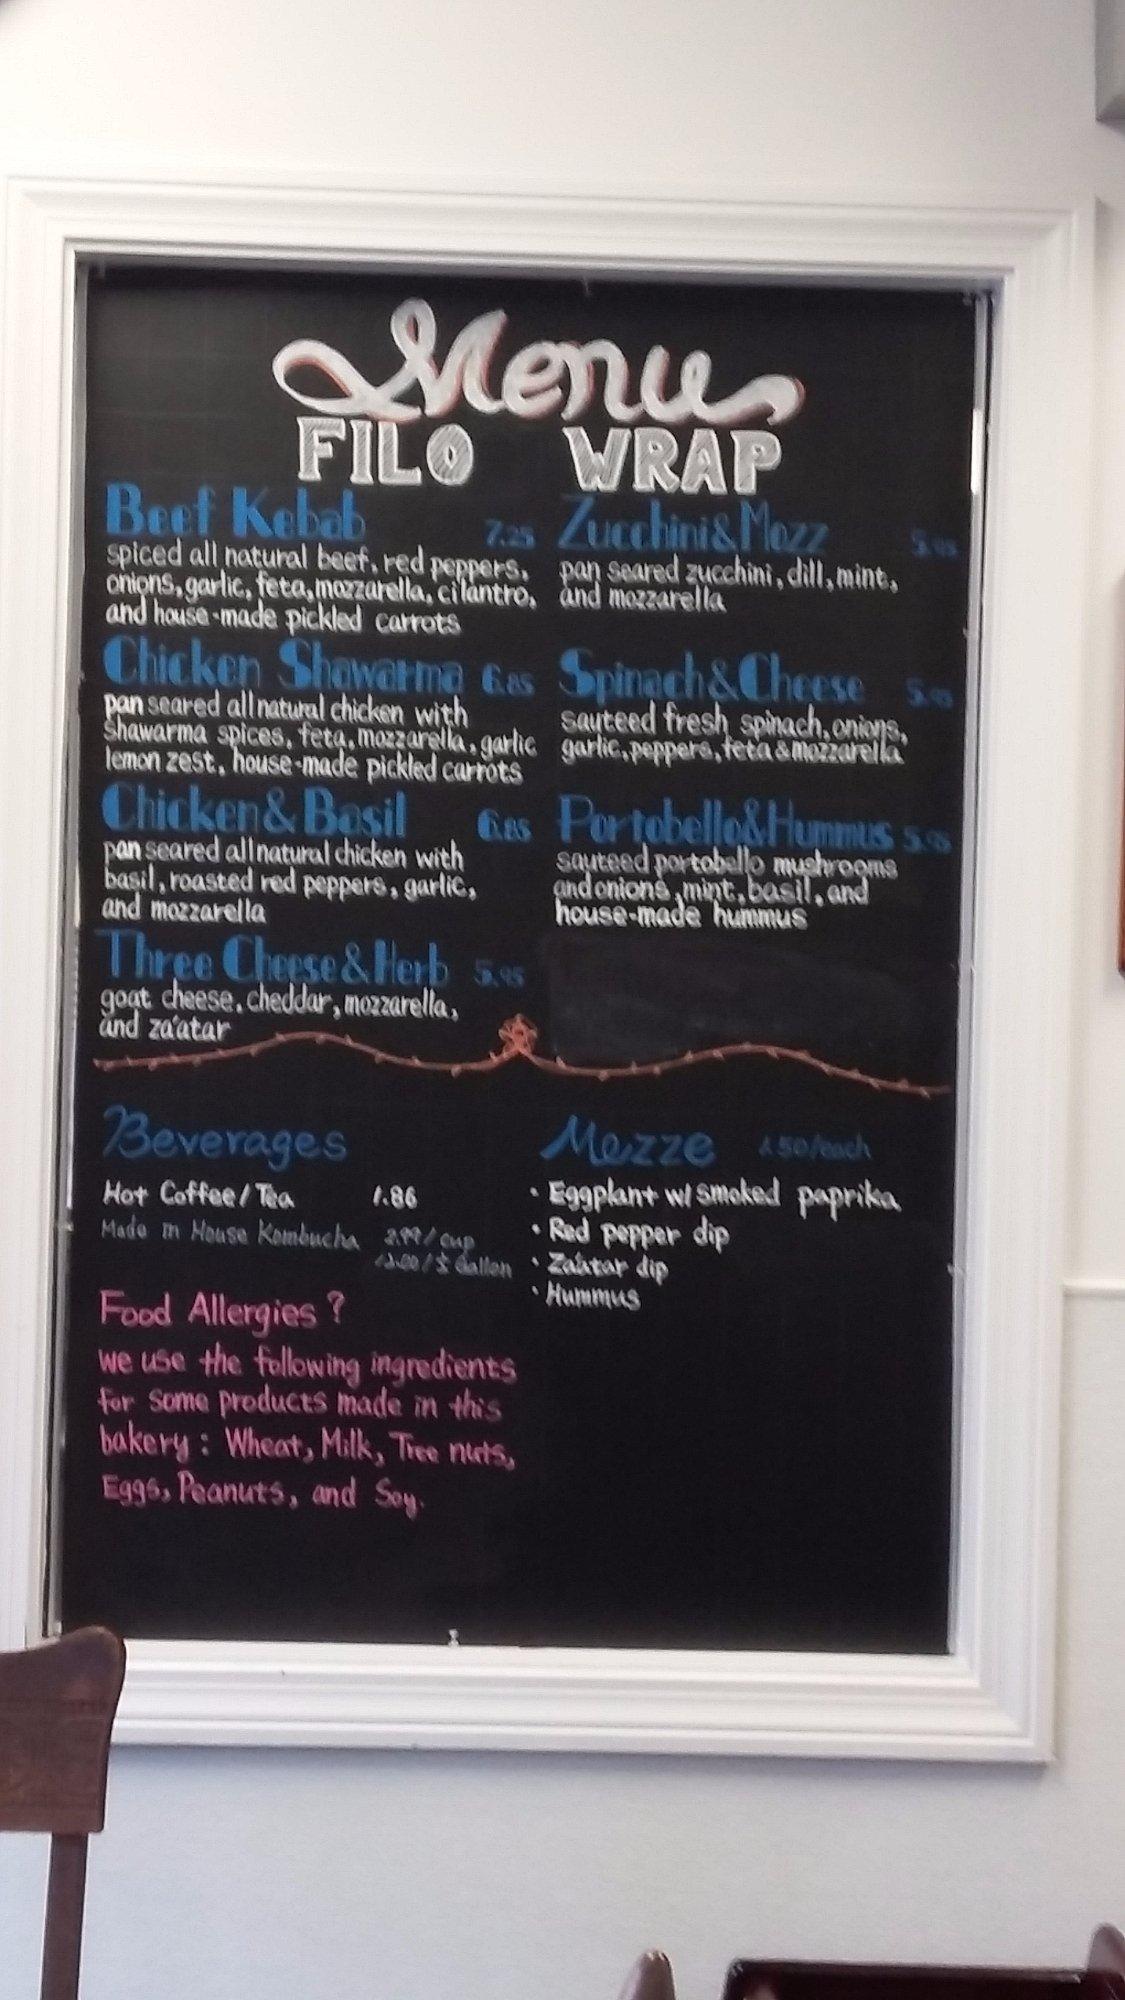 Menu
FILO WRAP
Beef Kebab 7.25
spiced all natural beef, red peppers,
onions, garlic, feta, mozzarella, cilantro,
and house-made pickled carrots
Chicken Shawarma 6.85
pan seared all natural chicken with
Shawarma spices, feta, mozzarella, garlic
lemon zest, house-made pickled carrots
Chicken & Basil 6.85
pan seared all natural chicken with
basil, roasted red peppers, garlic,
and mozzarella
Three Cheese & Herb 5.95
goat cheese, cheddar, mozzarella,
and za'atar
Zucchini & Mozz 5.95
pan seared zucchini, dill, mint,
and mozzarella
Spinach & Cheese 5.95
sauteed fresh spinach, onions,
garlic, peppers, feta & mozzarella
Portobello & Hummus 5.95
sauteed portobello mushrooms
and onions, mint, basil, and
house-made hummus
Beverages
Hot Coffee/Tea 1.86
Made in House Kombucha 2.99/cup
Gallon
Food Allergies?
we use the following ingredients
for some products made in this
bakery: Wheat, Milk, Tree nuts,
Eggs, Peanuts, and Soy.
Mezze /each
• Eggplant w/ smoked paprika
• Red pepper dip
• Za'atar dip
• Hummus